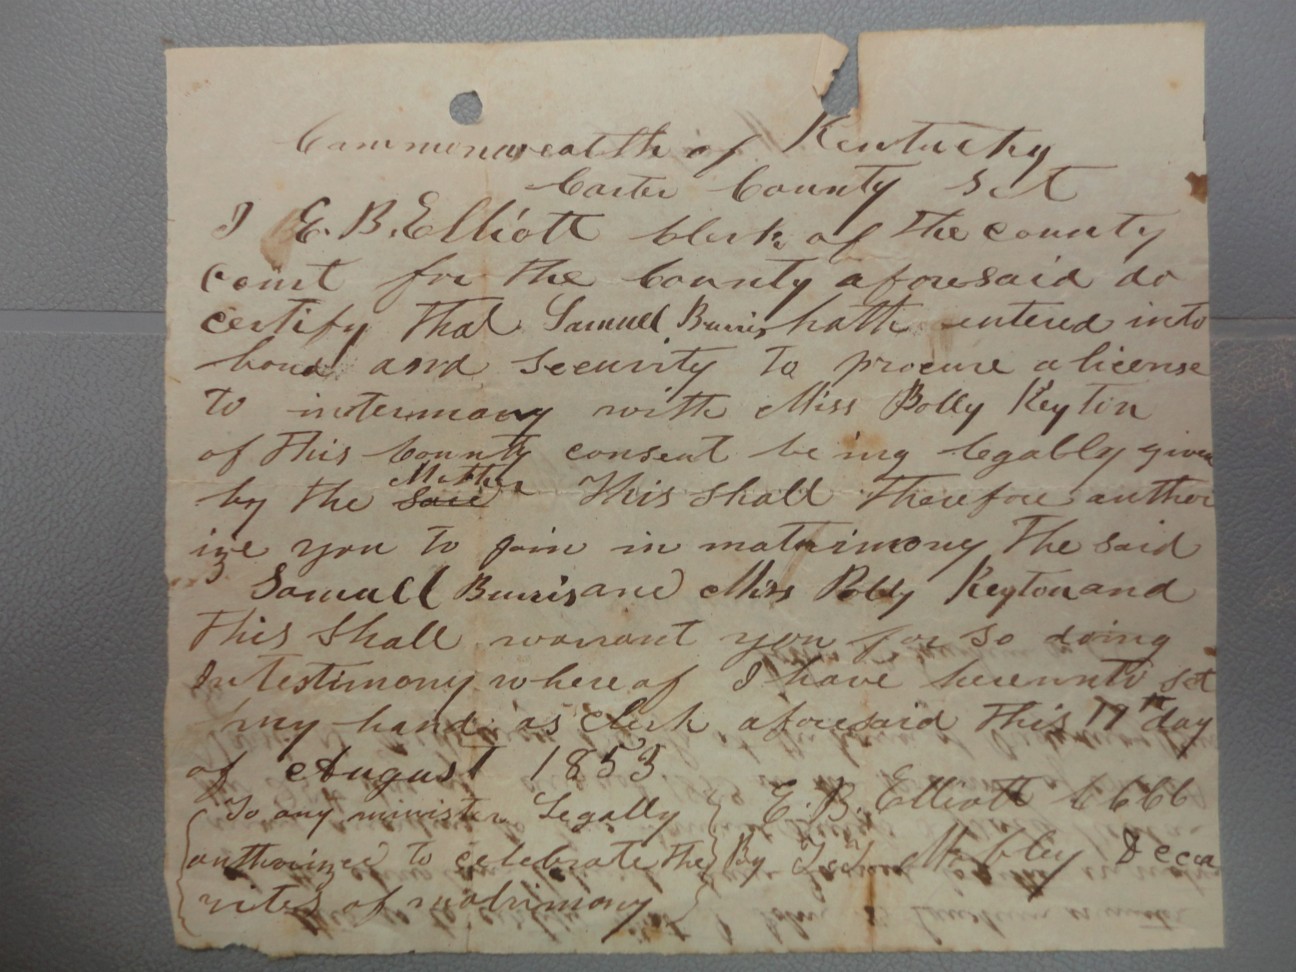 Commonwealth of Kentucky
Carter County Sct
I E. B. Elliott Clerk of the county
court for the County aforesaid do
certify that Samuel Burris hath entered into
bond and security to procure a license
to intermary with Miss Polly Keytin
of this County consent being legally given
by the Mother This shall therefore author
ize you to join in matrimony the said
Samuell Burris and Miss Polly Keyton and
this shall warrant you for so doing
In testimony where of I have hereunto set
my hand as clerk aforesaid this 19th day
of August 1853
To any minister Legally
authorized to celebrate the
rites of matrimony
E. B. Elliott CCCC
By Mobley D CCCC